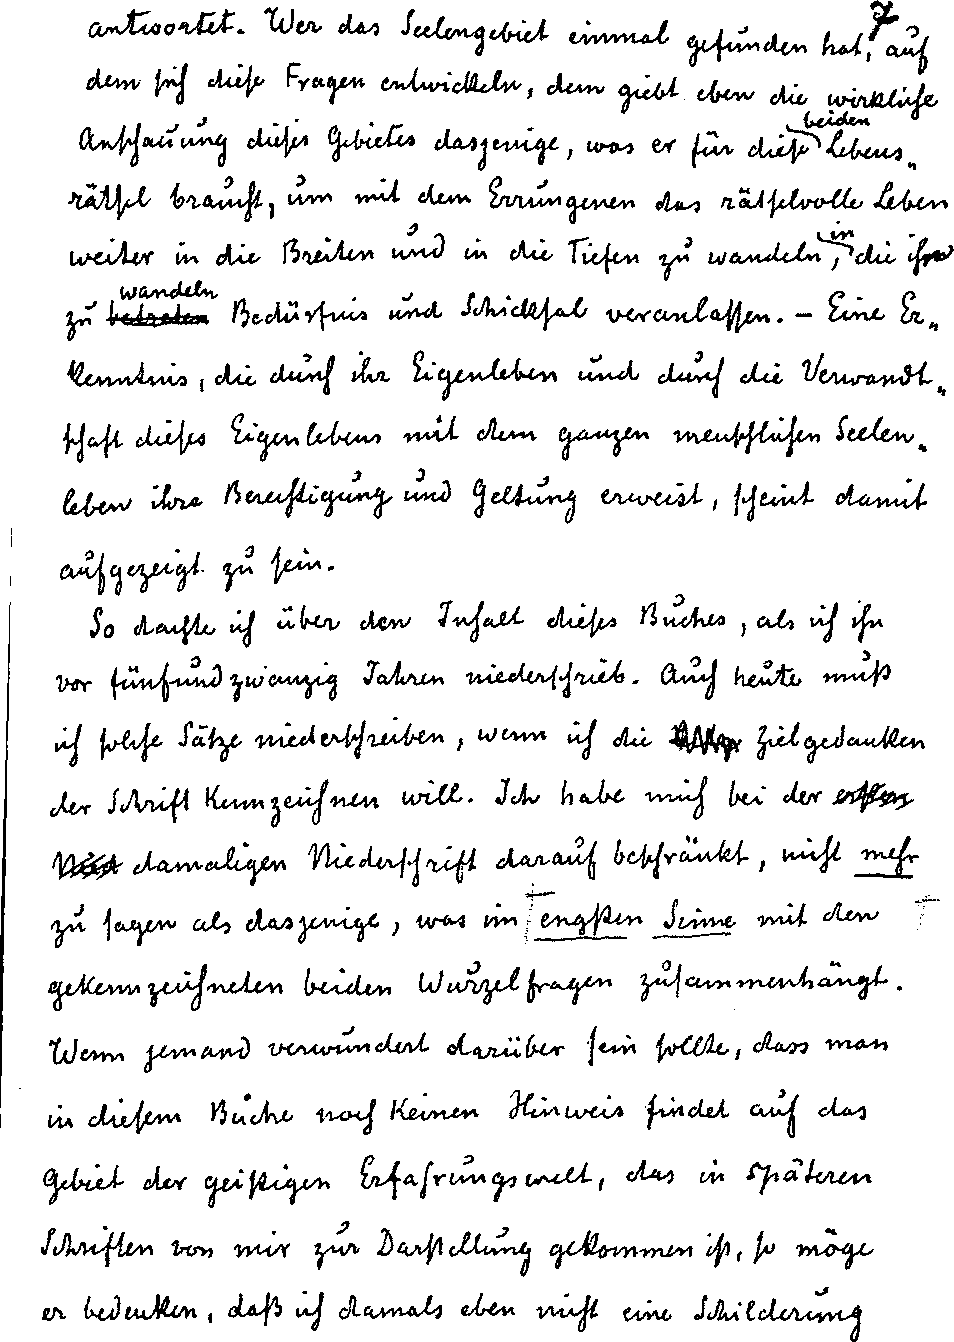 7
antwortet. Wer das Seelengebiet einmal gefunden hat, auf
dem sich diese Fragen entwickeln, dem giebt eben die wirkliche
beiden
Anschauung dieses Gebietes dasjenige, was er für diese Lebens„
rätsel braucht, um mit dem Errungenen das rätselvolle Leben
in
weiter in die Breiten und in die Tiefen zu wandeln, die ihn
wandeln
zu betreten Bedürfnis und Schicksal veranlassen. – Eine Er„
kenntnis, die durch ihr Eigenleben und durch die Verwandt„
schaft dieses Eigenlebens mit dem ganzen menschlichen Seelen„
leben ihre Berechtigung und Geltung erweist, scheint damit
aufgezeigt zu sein.
So dachte ich über den Inhalt dieses Buches, als ich ihn
vor fünfundzwanzig Jahren niederschrieb. Auch heute muß
ich solche Sätze niederschreiben, wenn ich die Zielgedanken
der Schrift kennzeichnen will. Ich habe mich bei der ersten
damaligen Niederschrift darauf beschränkt, nicht mehr
zu sagen als dasjenige, was im engsten Sinne mit den
gekennzeichneten beiden Wurzelfragen zusammenhängt.
Wenn jemand verwundert darüber sein sollte, dass man
in diesem Buche noch keinen Hinweis findet auf das
Gebiet der geistigen Erfahrungswelt, das in späteren
Schriften von mir zur Darstellung gekommen ist, so möge
er bedenken, daß ich damals eben nicht eine Schilderung